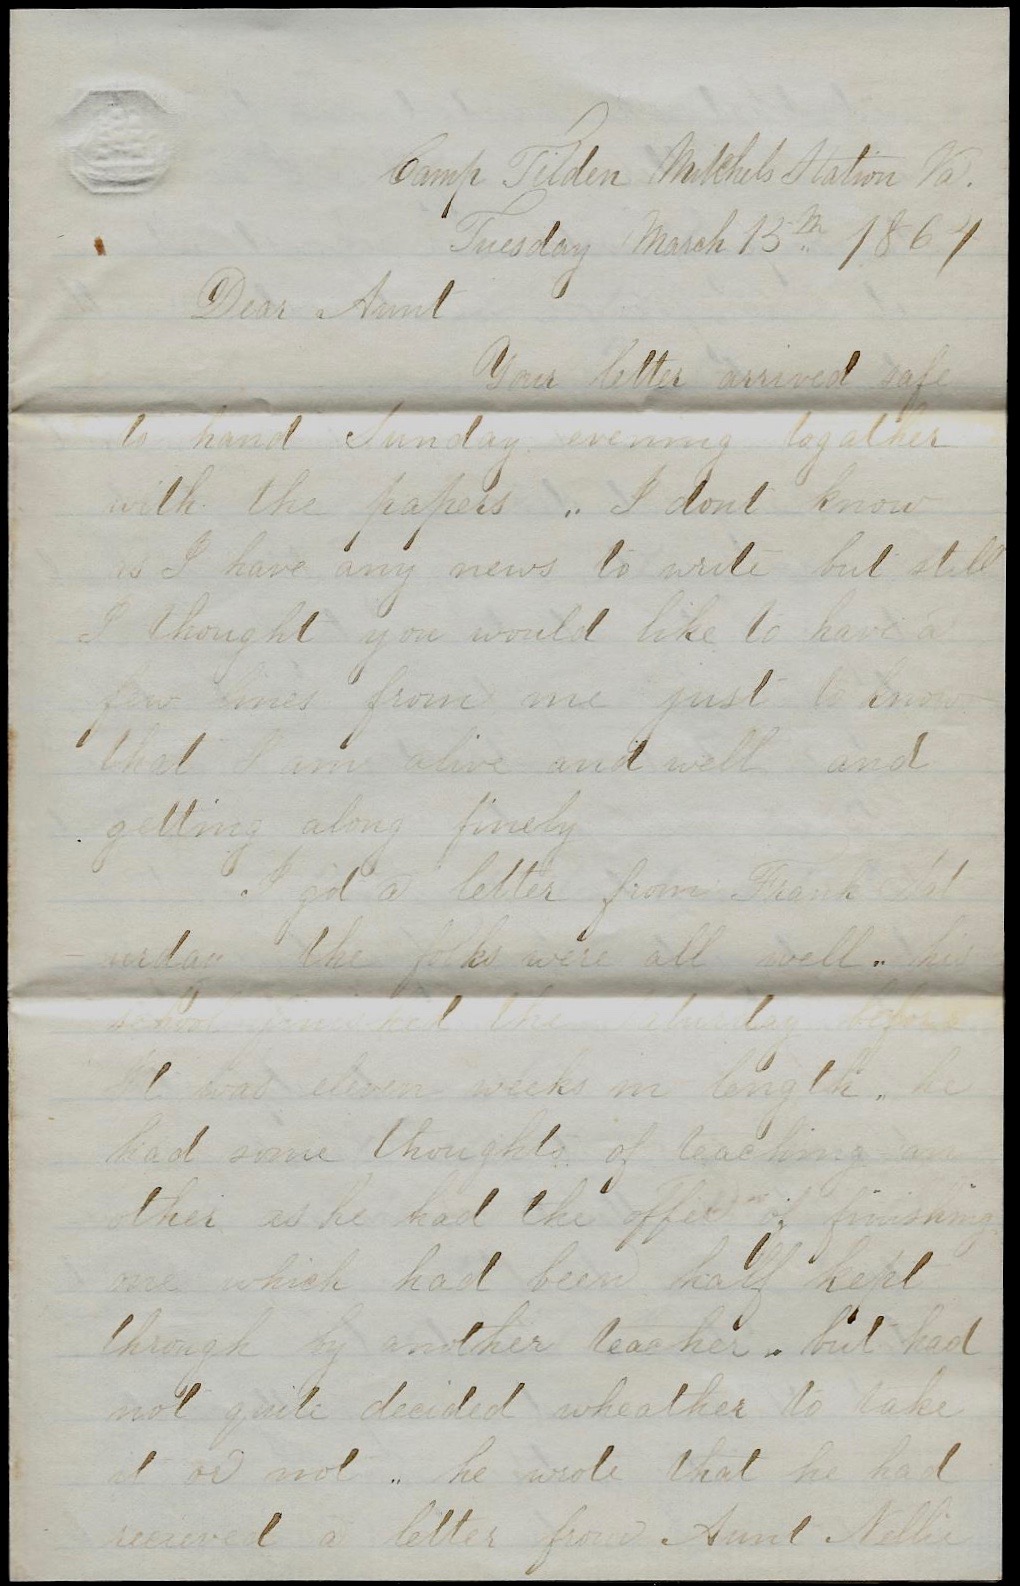 Camp Tilden Mitchels Station Va.
Tuesday March 15th 1864
Dear Aunt
Your letter arrived safe
to hand Sunday evening togather
with the papers .. I dont know
as I have any news to write but still
I thought you would like to have a
few lines from me just to know
that I am alive and well and
getting along finely
I got a letter from Frank Sat
-urday the folks were all well .. his
school finished the Saturday before
it was eleven weeks in length .. he
had some thoughts of teaching an
other as he had the offer of finishing
one which had been half kept
through by another teacher .. but had
not quite decided wheather to take
it or not .. he wrote that he had
recieved a letter from Aunt Nellie